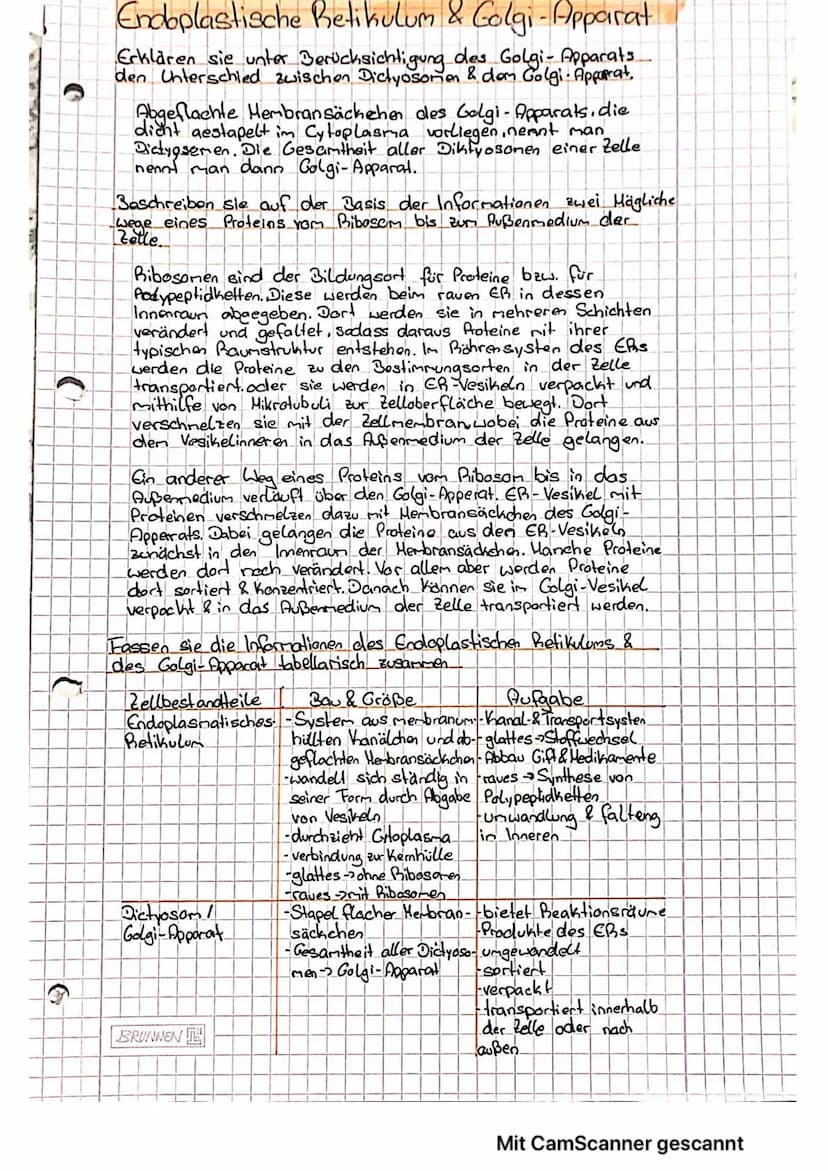 Endoplastische Retikulum & Golgi-Apparat
Erklären sie unter Berücksichtigung des Golgi-Apparats
den Unterschied zwischen Dictyosomen & dem Golgi-Apparat.
Abgeflachte Membransäckchen des Golgi-Apparats, die
dicht gestapelt im Cytoplasma vorliegen, nennt man
Dictyosemen. Die Gesamtheit aller Diktyosonen einer Zelle
nennt man dann Golgi-Apparat.
Beschreiben sie auf der Basis der Informationen zwei Mägliche
wege eines Proteins vom Ribosom bis zum Außenmedium der
Zelle.
Ribosomen sind der Bildungsort für Proteine bzw. für
Polypeptidketten. Diese werden beim rauen ER in dessen
Innenraum abgegeben. Dort werden sie in mehreren Schichten
verändert und gefaltet, sodass daraus Proteine mit ihrer
typischen Raumstruktur entstehen. Im Röhrensystem des ERs
werden die Proteine zu den Bestimmungsorten in der Zelle
transportiert oder sie werden in ER-Vesikeln verpackt und
mithilfe von Mikrotubuli zur Zelloberfläche bewegt. Dort
verschmelzen sie mit der Zellmembran, wobei die Proteine aus
dem Vesikelinneren in das Außenmedium der Zelle gelangen.
Ein anderer Weg eines Proteins vom Ribosom bis in das
Außenmedium verläuft über den Golgi-Apperat. ER-Vesikel mit
Proteinen verschmelzen dazu mit Membransäckchen des Golgi-
Apperats. Dabei gelangen die Proteine aus den ER-Vesikeln
zunächst in den Innenraum der Membransäckchen. Manche Proteine
werden dort noch verändert. Vor allem aber werden Proteine
dort sortiert & konzentriert. Danach können sie in Golgi-Vesikel
verpackt & in das Außenmedium der Zelle transportiert werden.
Fassen sie die Informationen des Endoplastischen Retikulums &
des Golgi-Apparat tabellarisch zusammen
Zellbestandteile Bau & Größe Aufgabe
Endoplasmatisches -System aus membranum- -Kanal-& Transportsystem
Retikulum hüllten Kanälchen und ab- -glattes->Stoffwechsel
geflachten Membransäckchen -Abbau Gift & Medikamente
-wandelt sich ständig in -raues -> Synthese von
seiner Form durch Abgabe Polypeptidketten
von Vesikeln -umwandlung & falteng
-durchzieht Cytoplasma in Inneren
-verbindung zur Kernhülle
-glattes->ohne Ribosomen
-raues->mit Ribosomen
Dictyosom/ -Stapel flacher Membran- -bietet Reaktionsräume
Golgi-Apparat säckchen -Produkte des ERs
-Gesamtheit aller Dictyoso- umgewandelt
men-> Golgi-Apparat -sortiert
-verpackt
-transportiert innerhalb
der Zelle oder nach
außen
BRUNNEN
Mit CamScanner gescannt